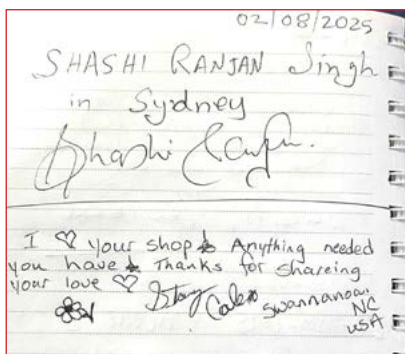 02/08/2025
SHASHI RANJAN Singh
in Sydney
Shashi
I ♡ your shop & Anything needed
you have & Thanks for shareing
your love ♡
Swannanoa,
NC
USA